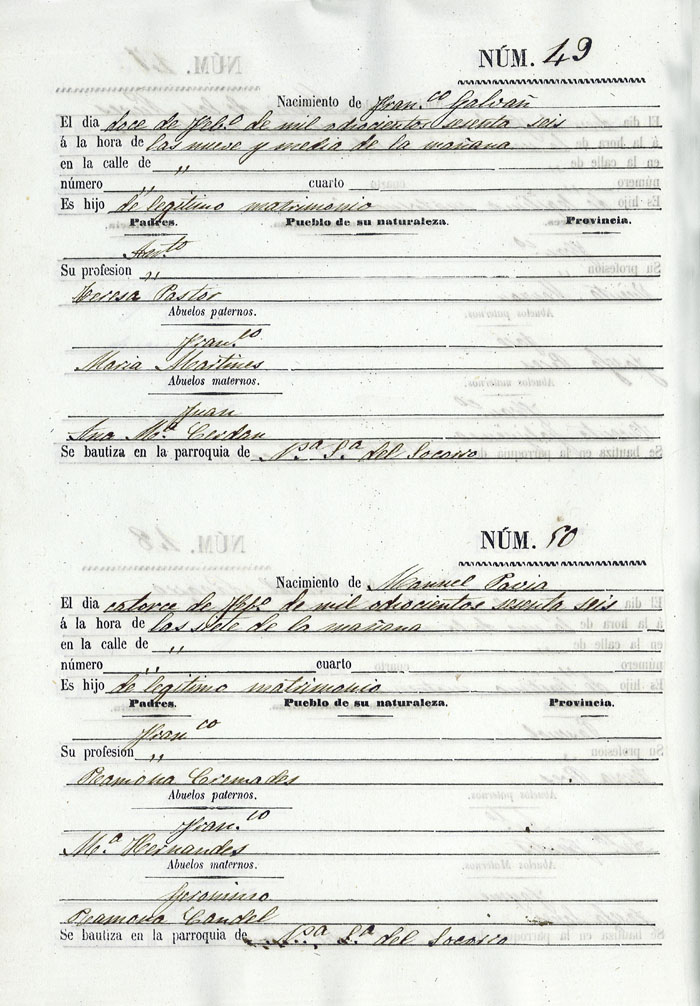 NÚM. 49
Nacimiento de Fran.co Galvañ
El dia doce de Feb.o de mil ochocientos sesenta seis
á la hora de las nueve y media de la mañana
en la calle de „
número „ cuarto
Es hijo de legitimo matrimonio
Padres. Pueblo de su naturaleza. Provincia.
Ant.o
Su profesion „
Teresa Pastor
Abuelos paternos.
Fran.co
Maria Martines
Abuelos maternos.
Juan
Ana M.a Cerdan
Se bautiza en la parroquia de N.a S.a del Socorro
NÚM. 50
Nacimiento de Manuel Pavia
El dia catorce de Feb.o de mil ochocientos sesenta seis
á la hora de las siete de la mañana
en la calle de „
número „ cuarto
Es hijo de legitimo matrimonio
Padres. Pueblo de su naturaleza. Provincia.
Fran co
Su profesión „
Ramona Cremades
Abuelos paternos.
Fran.co
M.a Hernandes
Abuelos maternos.
Geronimo
Ramona Candel
Se bautiza en la parroquia de N.a S.a del Socorro